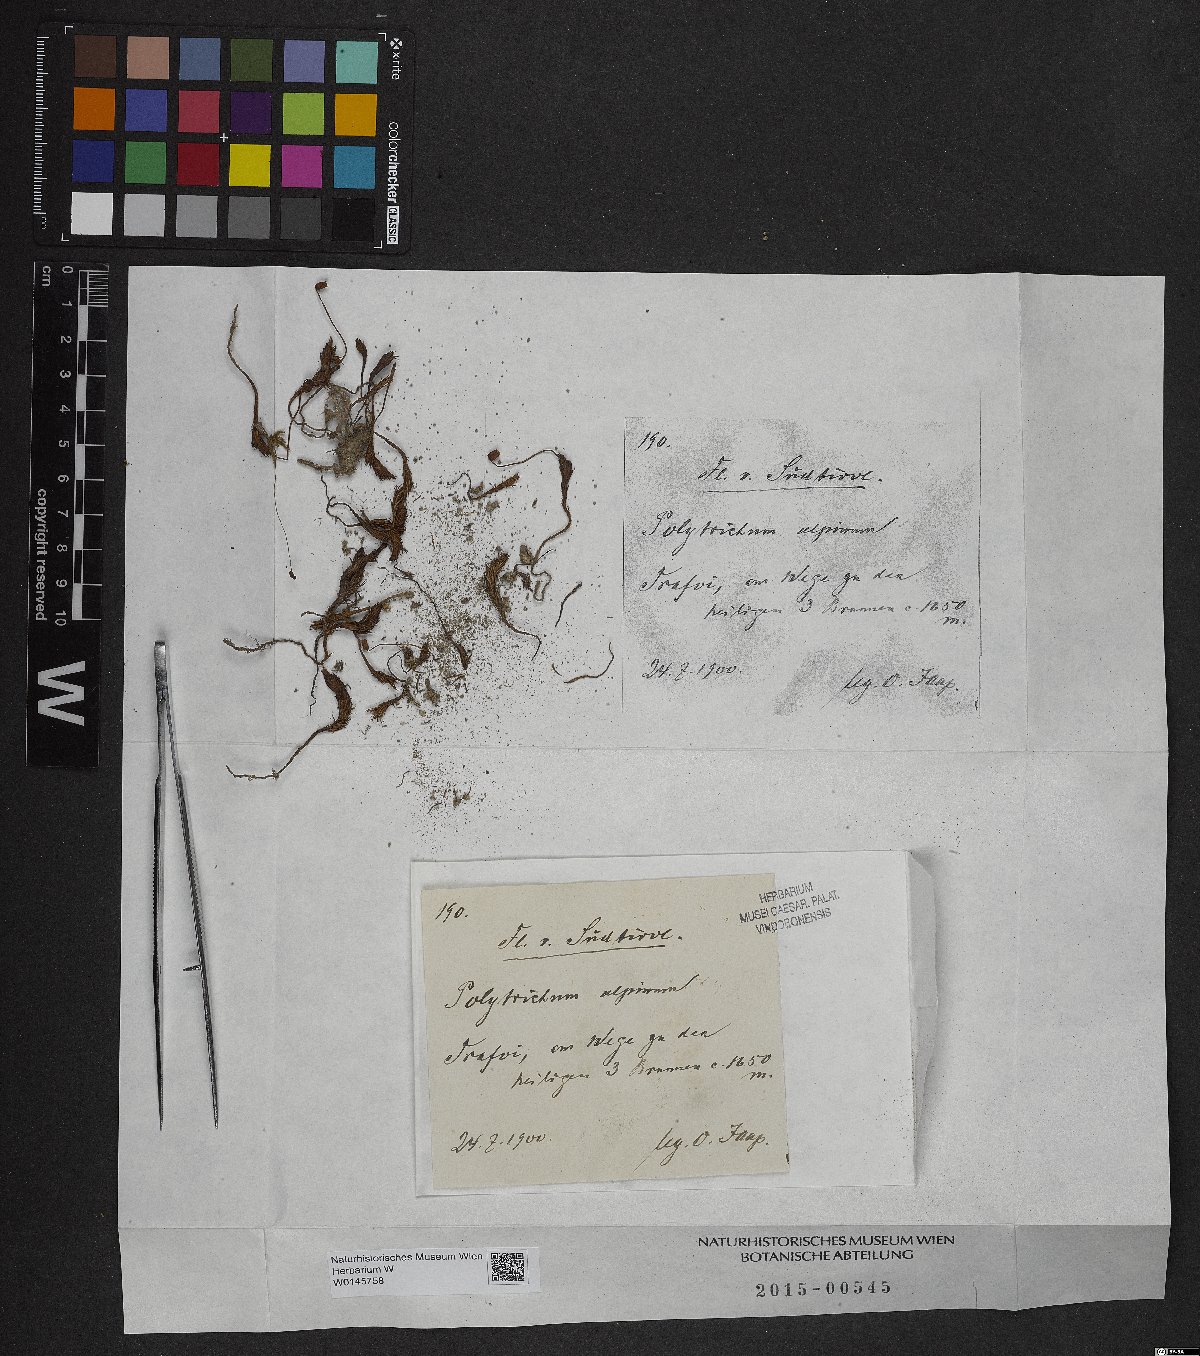 x·rite
colorchecker CLASSIC
cm
0 1 2 3 4 5 6 7 8 9 10
copyright reserved
W
190.
Fl. v. Südtirol.
Polytrichum alpinum
Trafoi, am Wege zu den
heiligen 3 Brunnen c. 1650
m.
24.7.1900.
leg. O. Jaap.
HERBARIUM
MUSEI CAESAR. PALAT.
VINDOBONENSIS
190.
Fl. v. Südtirol.
Polytrichum alpinum
Trafoi, am Wege zu den
heiligen 3 Brunnen c. 1650
m.
24.7.1900.
leg. O. Jaap.
Naturhistorisches Museum Wien
Herbarium W
W0145758
NATURHISTORISCHES MUSEUM WIEN
BOTANISCHE ABTEILUNG
2015-00545